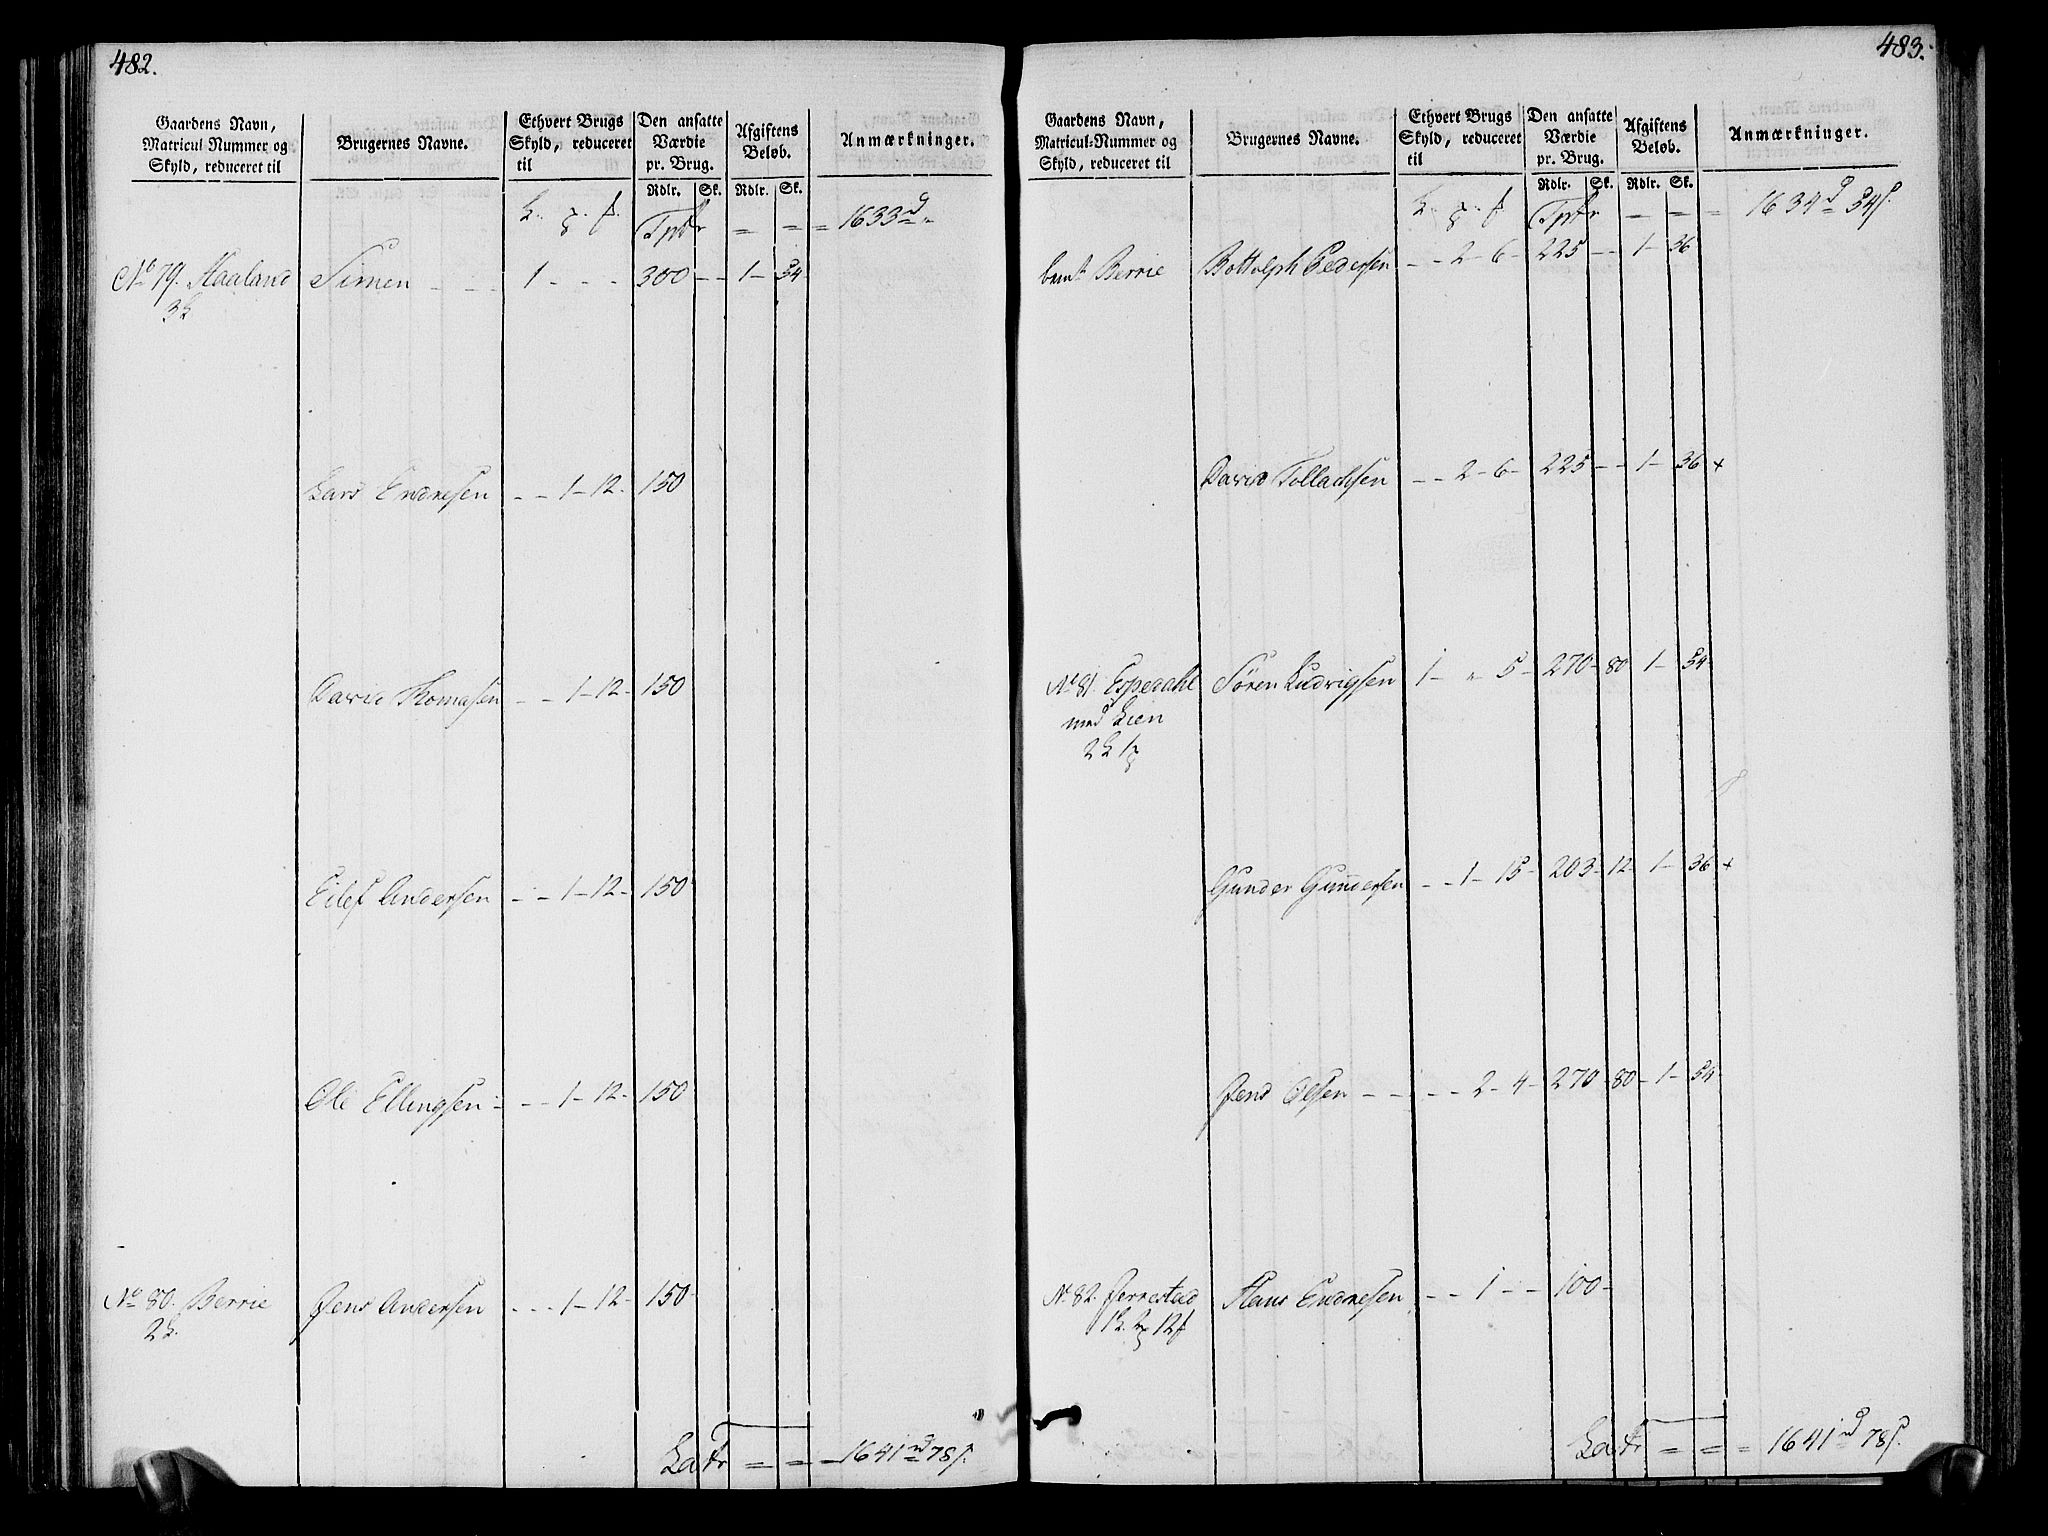 482.
Gaardens Navn, Matricul-Nummer og Skyld, reduceret til
Brugernes Navne.
Ethvert Brugs Skyld, reduceret til
Den ansatte Værdie pr. Brug.
Afgiftens Beløb.
Anmærkninger.
Rdlr. Sk. Rdlr. Sk.
Tpfr = = = 1633 rd "
No 79. Haaland Simen - - - 1 - - - 300 - - 1 - 54
3
Lars Endresen - - 1 - 12 - 150
David Thomassen - - 1 - 12 - 150
Eilef Andersen - - 1 - 12 - 150
Ole Ellingsen - - - 1 - 12 - 150
No 80. Berrie Jens Andersen - - - 1 - 12 - 150
2
Latr = = = 1641 rd 78 s.
483.
Gaardens Navn, Matricul-Nummer og Skyld, reduceret til
Brugernes Navne.
Ethvert Brugs Skyld, reduceret til
Den ansatte Værdie pr. Brug.
Afgiftens Beløb.
Anmærkninger.
Rdlr. Sk. Rdlr. Sk.
Tpfr = = = 1634 d 54 s.
Berrie Bottolph Pedersen - - 2 - 6 - 225 - - 1 - 36
David Tollachsen - - 2 - 6 - 225 - - 1 - 36 +
No 81. Espedahl Søren Ludvigsen 1 - " 5 - 270 - 80 1 - 54
med Lien
2 1
Gunder Gundersen - - 1 - 15 - 203 - 12 - 1 - 36 +
Jens Olsen - - - - 2 - 4 - 270 - 80 - 1 - 54
No 82. Jerrestad Hans Endresen - - 1 - - 100 -
12
Latr = = = 1641 rd 78 s.